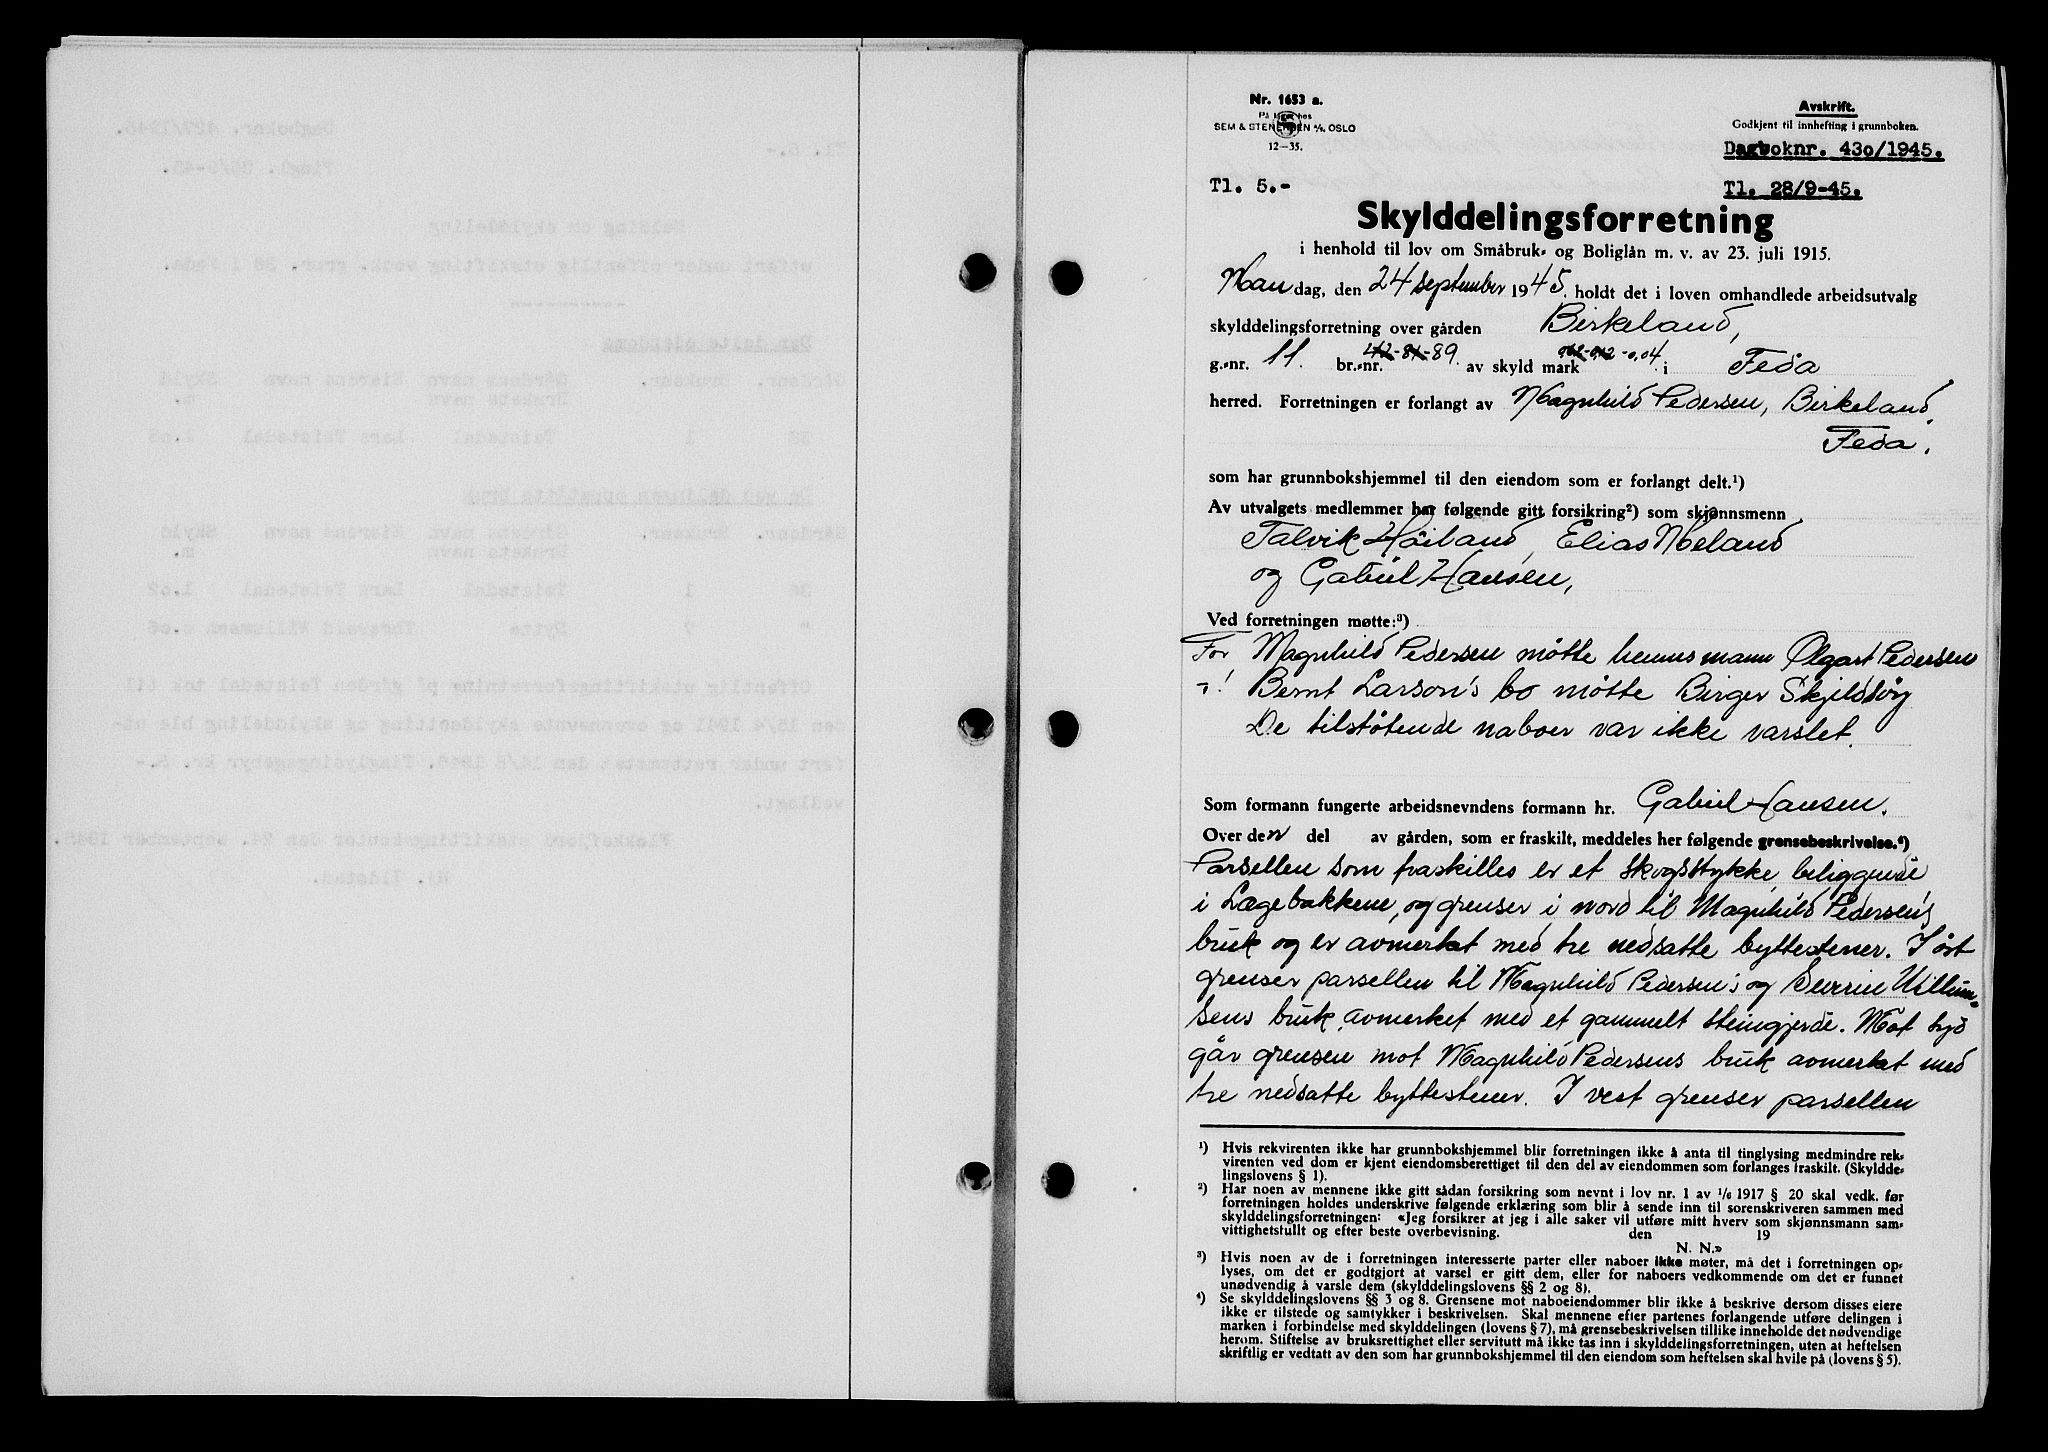 Nr. 1653 a.
SEM & STENERSEN A/S. OSLO
12—35.
Avskrift.
Godkjent til innhefting i grunnboken.
Dagboknr. 430/1945.
Tl. 5.-
Tl. 28/9-45.
Skylddelingsforretning
i henhold til lov om Småbruk- og Boliglån m. v. av 23. juli 1915.
Mandag, den 24 september 1945. holdt det i loven omhandlede arbeidsutvalg
skylddelingsforretning over gården Birkeland,
g.-nr. 11. br.-nr. 89. av skyld mark 0,04. i Feda
herred. Forretningen er forlangt av Magnhild Pedersen, Birkeland,
Feda.
som har grunnbokshjemmel til den eiendom som er forlangt delt.¹)
Av utvalgets medlemmer har følgende gitt forsikring²) som skjønnsmenn
Talvik Høiland, Elias Moeland
og Gabriel Hansen,
Ved forretningen møtte:³)
For Magnhild Pedersen møtte hennes mann Olgart Pedersen
Bernt Larson's bo møtte Birger Skjildsøy
De tilstøtende naboer var ikke varslet.
Som formann fungerte arbeidsnevndens formann hr. Gabriel Hansen.
Over den del av gården, som er fraskilt, meddeles her følgende grensebeskrivelse.⁴)
Parsellen som fraskilles er et skogstykke, beliggende
i Lægebakkene, og grenser i nord til Magnhild Pedersens
bruk og er avmerket med tre nedsatte byttestener. I øst
grenser parsellen til Magnhild Pedersen's og Severin Willum-
sens bruk, avmerket med et gammelt steingjerde. Mot syd
går grensen mot Magnhild Pedersens bruk avmerket med
tre nedsatte byttestener. I vest grenser parsellen
¹) Hvis rekvirenten ikke har grunnbokshjemmel blir forretningen ikke å anta til tinglysing medmindre rek-
virenten ved dom er kjent eiendomsberettiget til den del av eiendommen som forlanges fraskilt. (Skyldde-
lingslovens § 1).
²) Har noen av mennene ikke gitt sådan forsikring som nevnt i lov nr. 1 av 1/6 1917 § 20 skal vedk. før
forretningen holdes underskrive følgende erklæring som blir å sende inn til sorenskriveren sammen med
skylddelingsforretningen: «Jeg forsikrer at jeg i alle saker vil utføre mitt hverv som skjønnsmann sam-
vittighetsfullt og efter beste overbevisning. den 19
N. N.»
³) Hvis noen av de i forretningen interesserte parter eller naboer ikke møter, må det i forretningen op-
lyses, om det er godtgjort at varsel er gitt dem, eller for naboers vedkommende om det er funnet
unødvendig å varsle dem (skylddelingslovens §§ 2 og 8).
⁴) Se skylddelingslovens §§ 3 og 8. Grensene mot naboeiendommer blir ikke å beskrive dersom disses eiere
ikke er tilstede og samtykker i beskrivelsen. Skal mennene efter partenes forlangende utføre delingen i
marken i forbindelse med skylddelingen (lovens § 7), må grensebeskrivelsen tillike inneholde det nødvendige
herom. Stiftelse av bruksrettighet eller servitutt må ikke tas inn i skylddelingsforretningen, uten at heftelsen
skriftlig er vedtatt av den som har grunnbokshjemmel til den eiendom som heftelsen skal hvile på (lovens § 5).